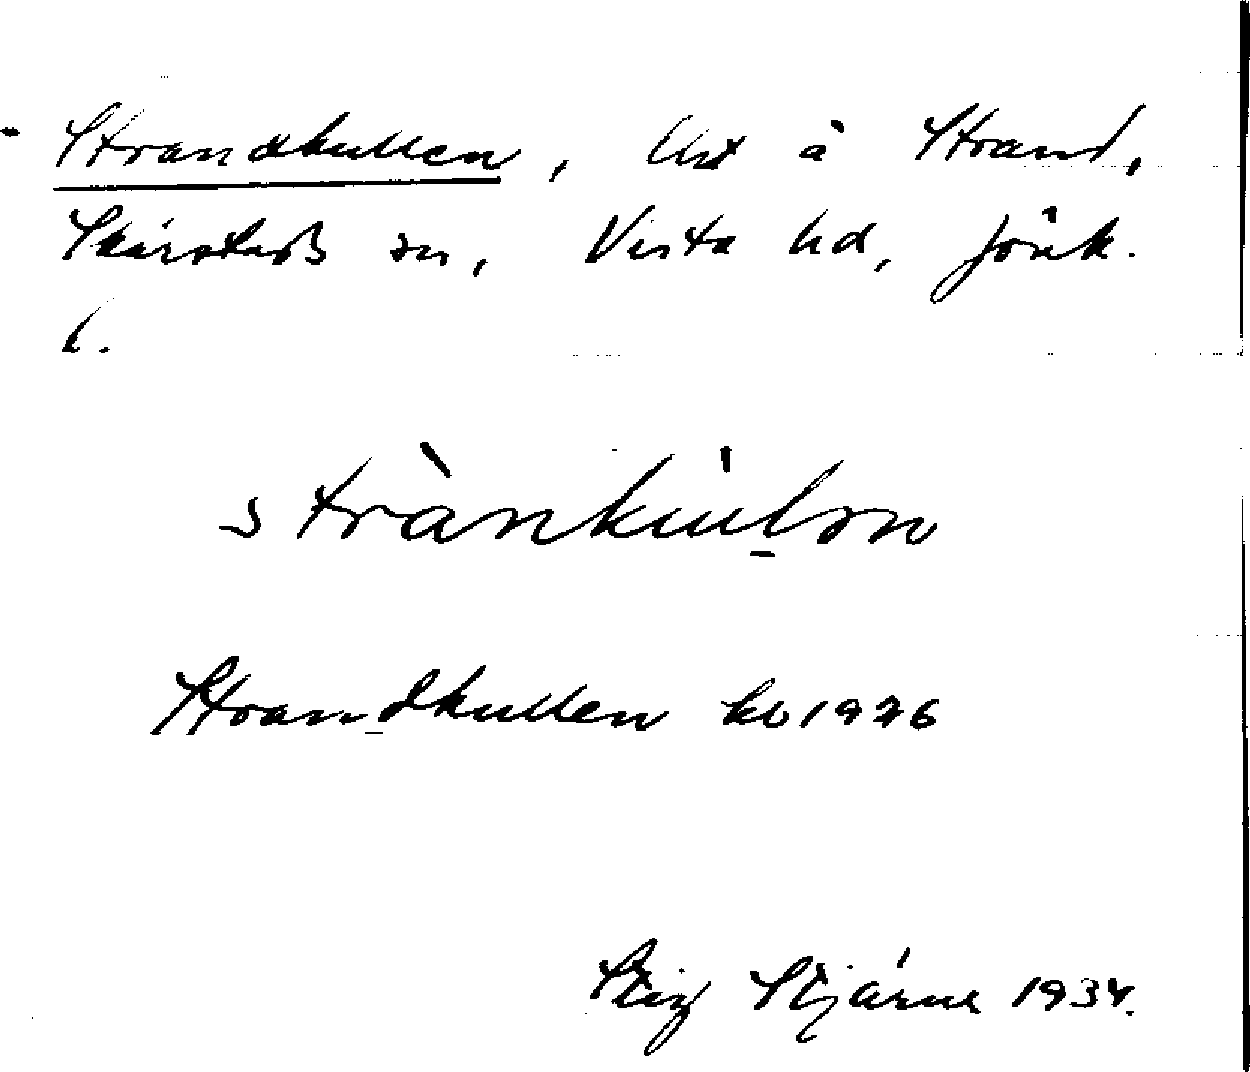 Strandkullen, Ust å Strand,
Skärstads sn, Vista hd, Jönk.
l.
stràn​kùl​ən
Strandkullen kb 1926
Stig Stjärne 1934.